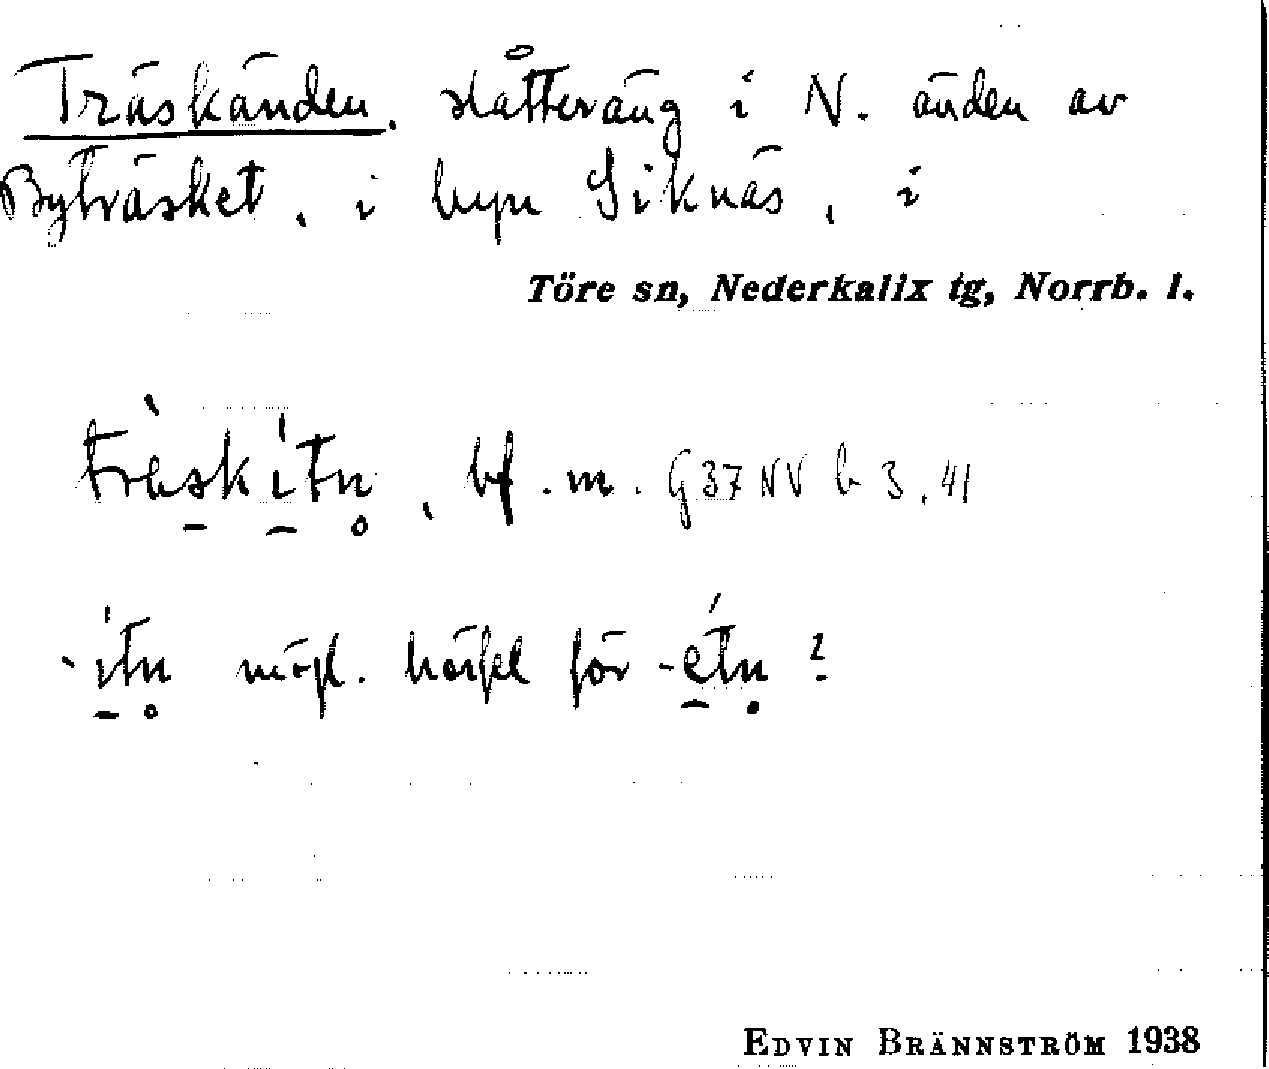 Träskänden. slåtteräng i N. änden av
Byträsket, i byn Siknäs, i
Töre sn, Nederkalix tg, Norrb. l.
tràskítn̥, bf. m. G 37 NV b 3, 41
-ítn̥ möjl. hörfel för -étn̥?
EDVIN BRÄNNSTRÖM 1938